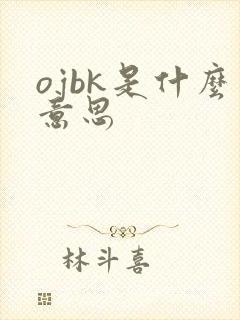 ojbk是什麼
意思
林斗喜